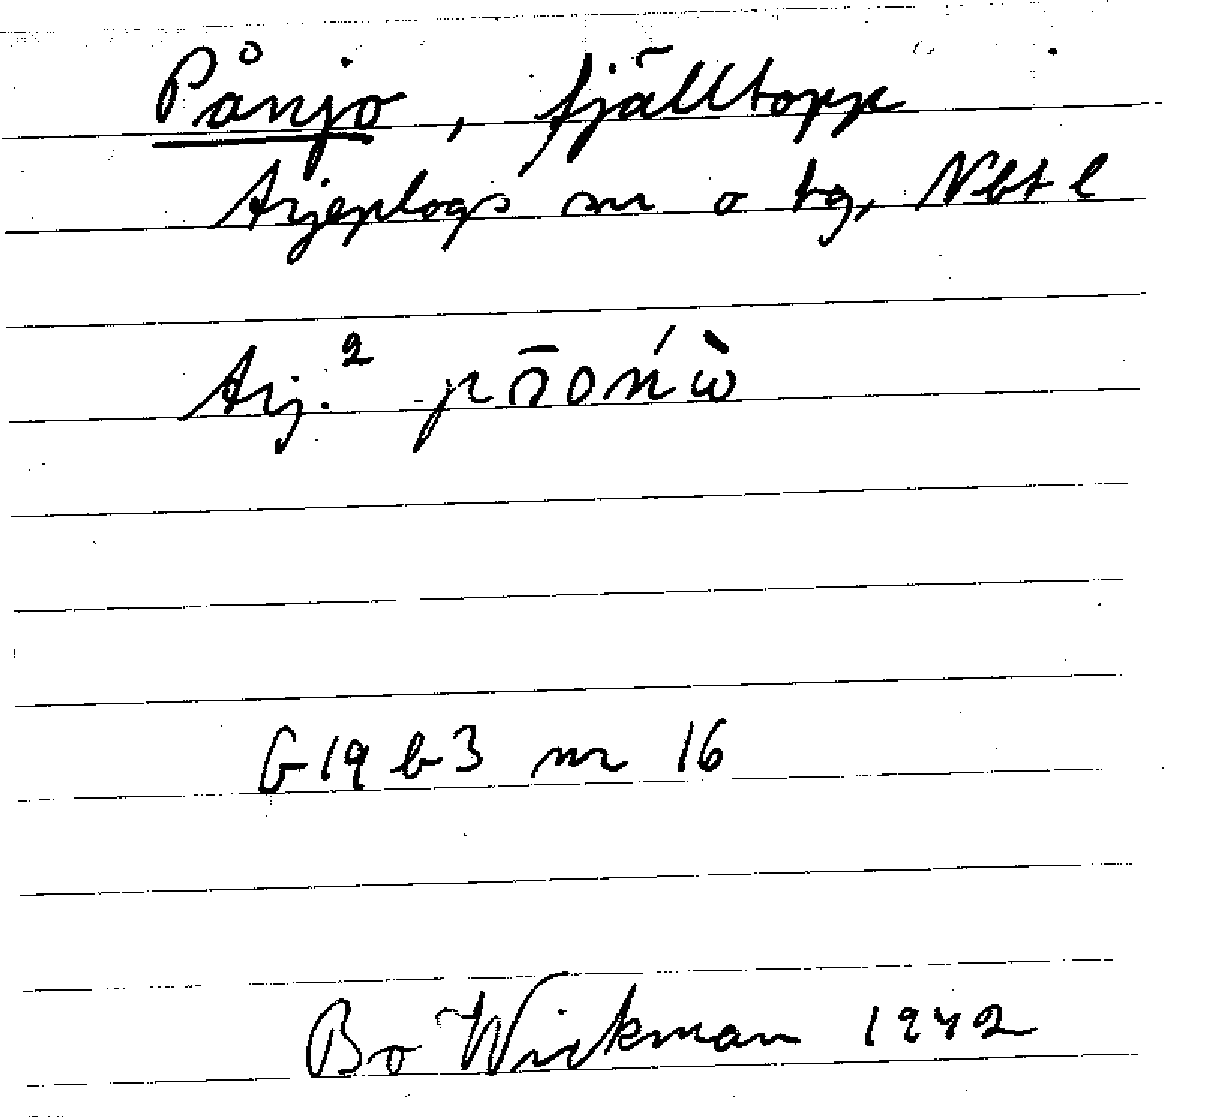 Pånjo, fjälltopp
Arjeplogs sn o tg, Nbt l
Arj.²
G 19 b 3 nr 16
Bo Wickman 1942